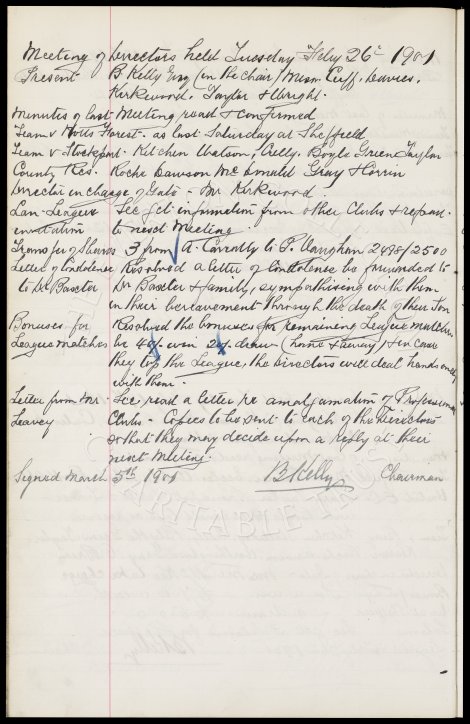 Meeting of Directors held Tuesday Feby 26th 1901
Present B Kelly Esq (in the chair) Messrs Cuff, Davies,
Kirkwood, Taylor & Wright.
Minutes of last Meeting read & confirmed
Team v Notts Forest. as last Saturday at Sheffield
Team v Stockport Kitchen Watson, Crelly. Boyle Green Taylor
County Res. Roche Dawson McDonald Gray & Corrin
Director in charge of Gate - Mr Kirkwood.
Lan. League Sec get information from other Clubs & report
invitation to next Meeting
Transfer of Shares 3 from A. Carnally to P. Vaughan 2498/2500
Letter of Condolence Resolved a letter of Condolence be forwarded to
to Dr Baxter Dr Baxter & family, sympathising with them
in their bereavement through the death of their Son
Bonuses for Resolved the bonuses for remaining League matches
League Matches be 40/- win 20/- draw (home & away) & in case
they top the League, the Directors will deal handsomely
with them.
Letter from Mr. Sec read a letter re amalgamation of Professional
Leavey Clubs - Copies to be sent to each of the Directors
so that they may decide upon a reply at their
next Meeting.
Signed March 5th 1901 B Kelly Chairman